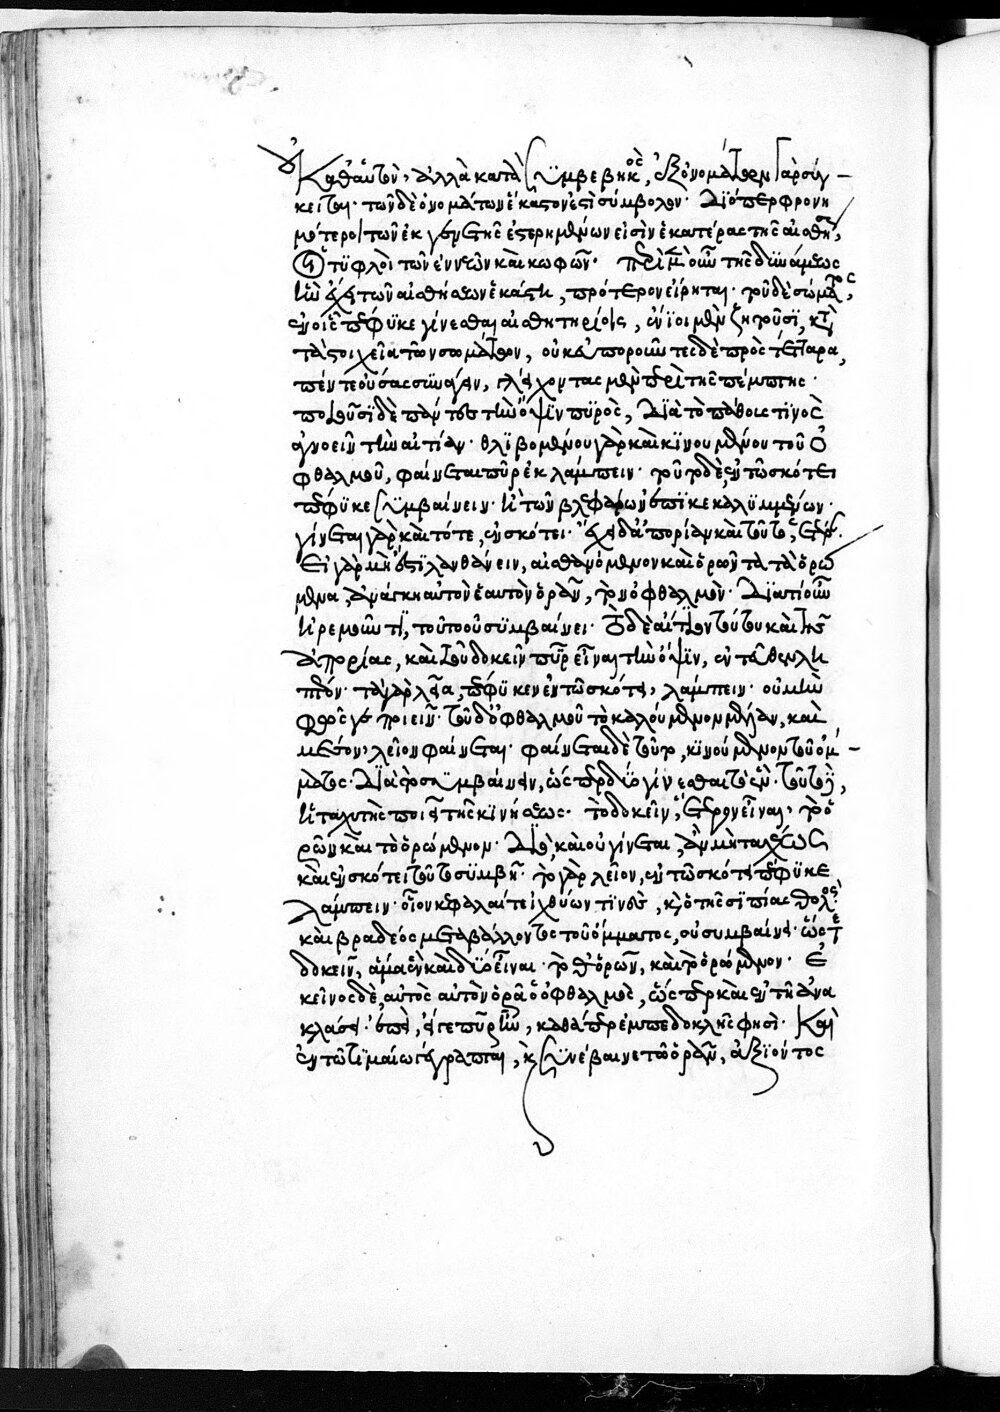 οὐ καθ' αὑτὸν, ἀλλὰ κατὰ συμβεβηκὸς, ἐξ ὀνομάτων γὰρ σύγ-
κειται· τῶν δὲ ὀνομάτων ἕκαστον ἐστὶ σύμβολον· διόπερ φρονι
μώτεροι τῶν ἐκ γενετῆς ἐστερημένων εἰσὶν ἑκατέρας τῆς αἰσθή
οἱ τυφλοὶ τῶν ἐννεῶν καὶ κωφῶν· περὶ μὲν οὖν τῆς δυνάμεως
ἣν ἔχει τῶν αἰσθήσεων ἑκάστη, πρότερον εἴρηται· τοῦ δὲ σώματος,
ἐν οἷς πέφυκε γίνεσθαι αἰσθητηρίοις, ἔνιοι μὲν ζητοῦσι, κατὰ
τὰ στοιχεῖα τῶν σωμάτων, οὐκ εὐποροῦντες δὲ πρὸς τέτταρα,
πέντε οὔσας συνάγειν, γλίχονται μὲν περὶ τῆς πέμπτης·
ποιοῦσι δὲ πάντες τὴν ὄψιν πυρὸς, διὰ τὸ πάθους τινὸς
ἀγνοεῖν τὴν αἰτίαν· θλιβομένου γὰρ καὶ κινουμένου τοῦ ὀ
φθαλμοῦ, φαίνεται πῦρ ἐκλάμπειν· τοῦτο δὲ ἐν τῶ σκότει
πέφυκε συμβαίνειν· ἢ τῶν βλεφάρων ἐπικεκαλυμμένων·
γίνεται γὰρ καὶ τότε, ἐν σκότει· ἔχει δ' ἀπορίαν καὶ τοῦτο, ἑτέραν·
εἰ γὰρ μὴ ἐστὶ λανθάνειν, αἰσθανόμενον καὶ ὁρῶντα τὰ ὁρώ
μενα, ἀνάγκη αὐτὸν ἑαυτὸν ὁρᾶν, τὸν ὀφθαλμόν· διατί οὖν
ἠρεμοῦντι, τοῦτο οὐ συμβαίνει· τὸ δὲ αἴτιον τούτου καὶ τῆς
ἀπορίας, καὶ τοῦ δοκεῖν πῦρ εἶναι τὴν ὄψιν, ἐντεῦθεν λη
πτέον· τὰ γὰρ λεῖα, πέφυκεν ἐν τῶ σκότει, λάμπειν· οὐ μὴν
φῶς γε ποιεῖν· τοῦ δ' ὀφθαλμοῦ τὸ καλούμενον μέλαν, καὶ
μέσον, λεῖον φαίνεται· φαίνεται δὲ τοῦτο, κινουμένου τοῦ ὄμ-
ματος· διὰ τὸ συμβαίνειν, ὥσπερ δύο γίνεσθαι τὸ ἕν· τοῦτο δ',
ἡ ταχυτὴς ποιεῖ τῆς κινήσεως· τὸ δοκεῖν, ἕτερον εἶναι, τὸ ὁ
ρῶν καὶ τὸ ὁρώμενον· διὸ, καὶ οὐ γίνεται, ἂν μὴ ταχέως
καὶ ἐν σκότει τοῦτο συμβῆ· τὸ γὰρ λεῖον, ἐν τῶ σκότει πέφυκε
λάμπειν· οἷον κεφαλαί τε ἰχθύων τινῶν, καὶ ὁ τῆς σηπίας θολὸς·
καὶ βραδέως μεταβάλλοντος τοῦ ὄμματος, οὐ συμβαίνει· ὥστε
δοκεῖν, ἅμα ἓν καὶ δύο εἶναι· τό θ' ὁρῶν, καὶ τὸ ὁρώμενον· ἐ
κείνως δὲ, αὐτὸς αὐτὸν ὁρᾶ ὁ ὀφθαλμὸς, ὥσπερ καὶ ἐν τῆ ἀνα
κλάσει· ἐπεὶ, εἴ γε πῦρ ἦν, καθάπερ ἐμπεδοκλῆς φησὶ· καὶ
ἐν τῶ τιμαίω γέγραπται, καὶ συνέβαινε τὸ ὁρᾶν, ἐξιόντος